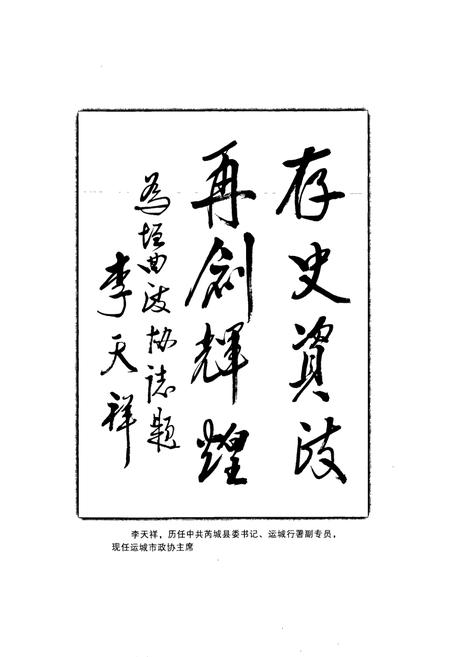 存史資政
再創輝煌
為垣曲政協誌題
李天祥
李天祥，历任中共芮城县委书记、运城行署副专员，
现任运城市政协主席